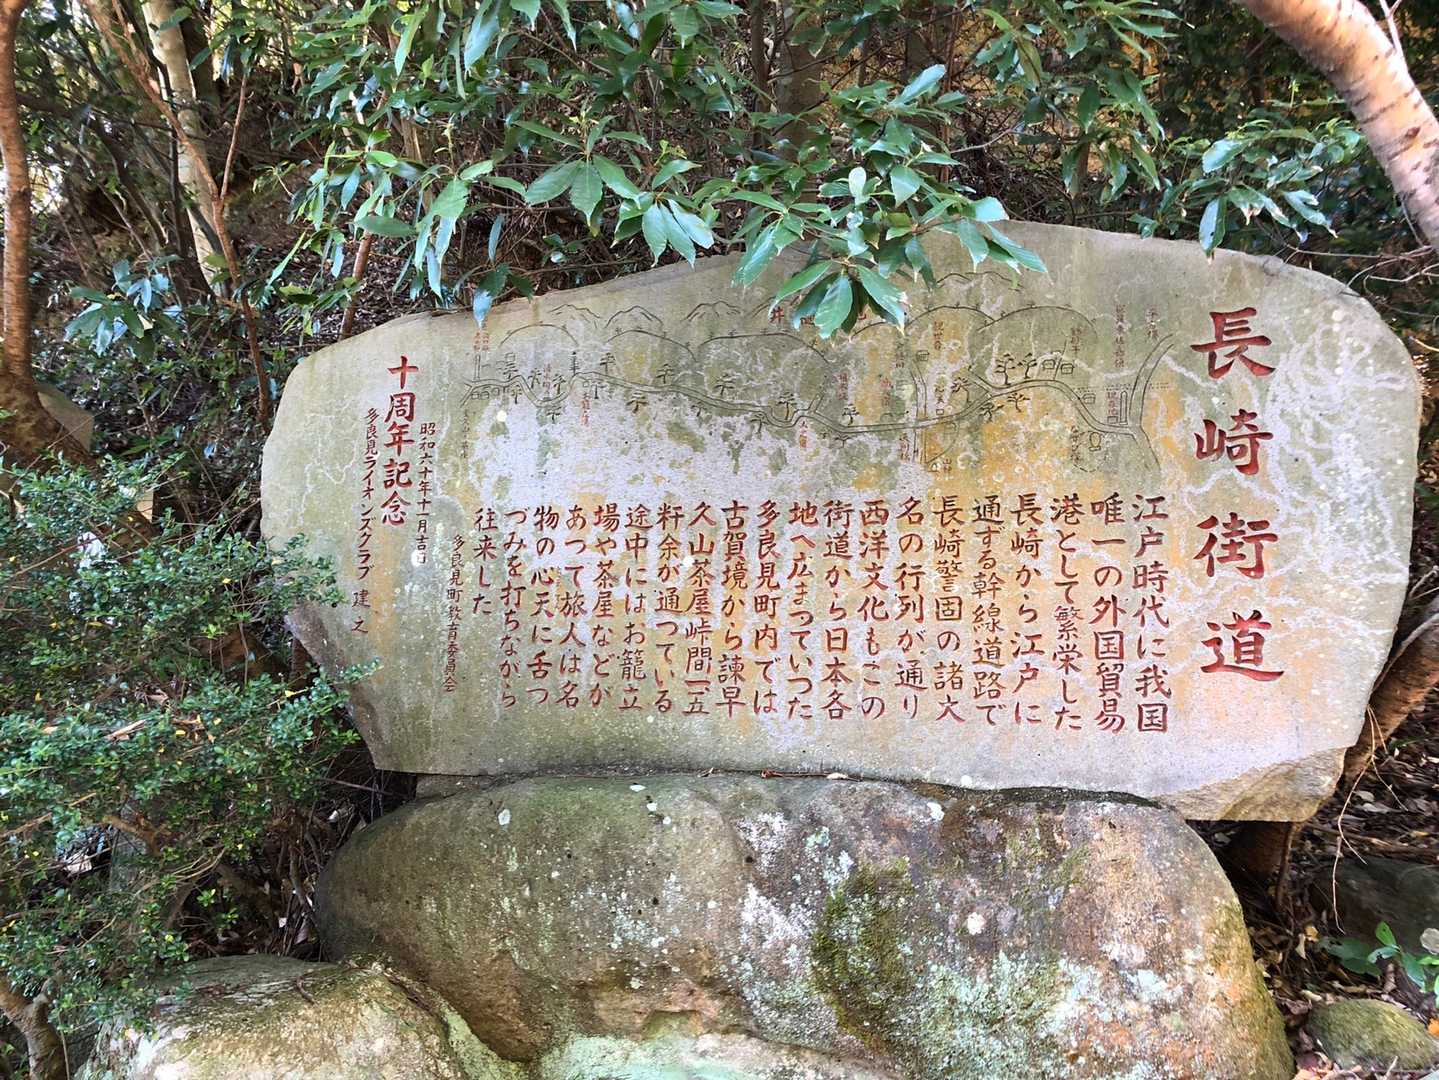 長崎街道
江戸時代に我国
唯一の外国貿易
港として繁栄した
長崎から江戸に
通ずる幹線道路で
長崎警固の諸大
名の行列が通り
西洋文化もこの
街道から日本各
地へ広まっていった
多良見町内では
古賀境から諫早
久山茶屋峠間一五
粁余が通っている
途中にはお籠立
場や茶屋などが
あって旅人は名
物の心天に舌つ
づみを打ちながら
往来した
多良見町教育委員会
昭和六十年十一月吉日
十周年記念
多良見ライオンズクラブ 建之